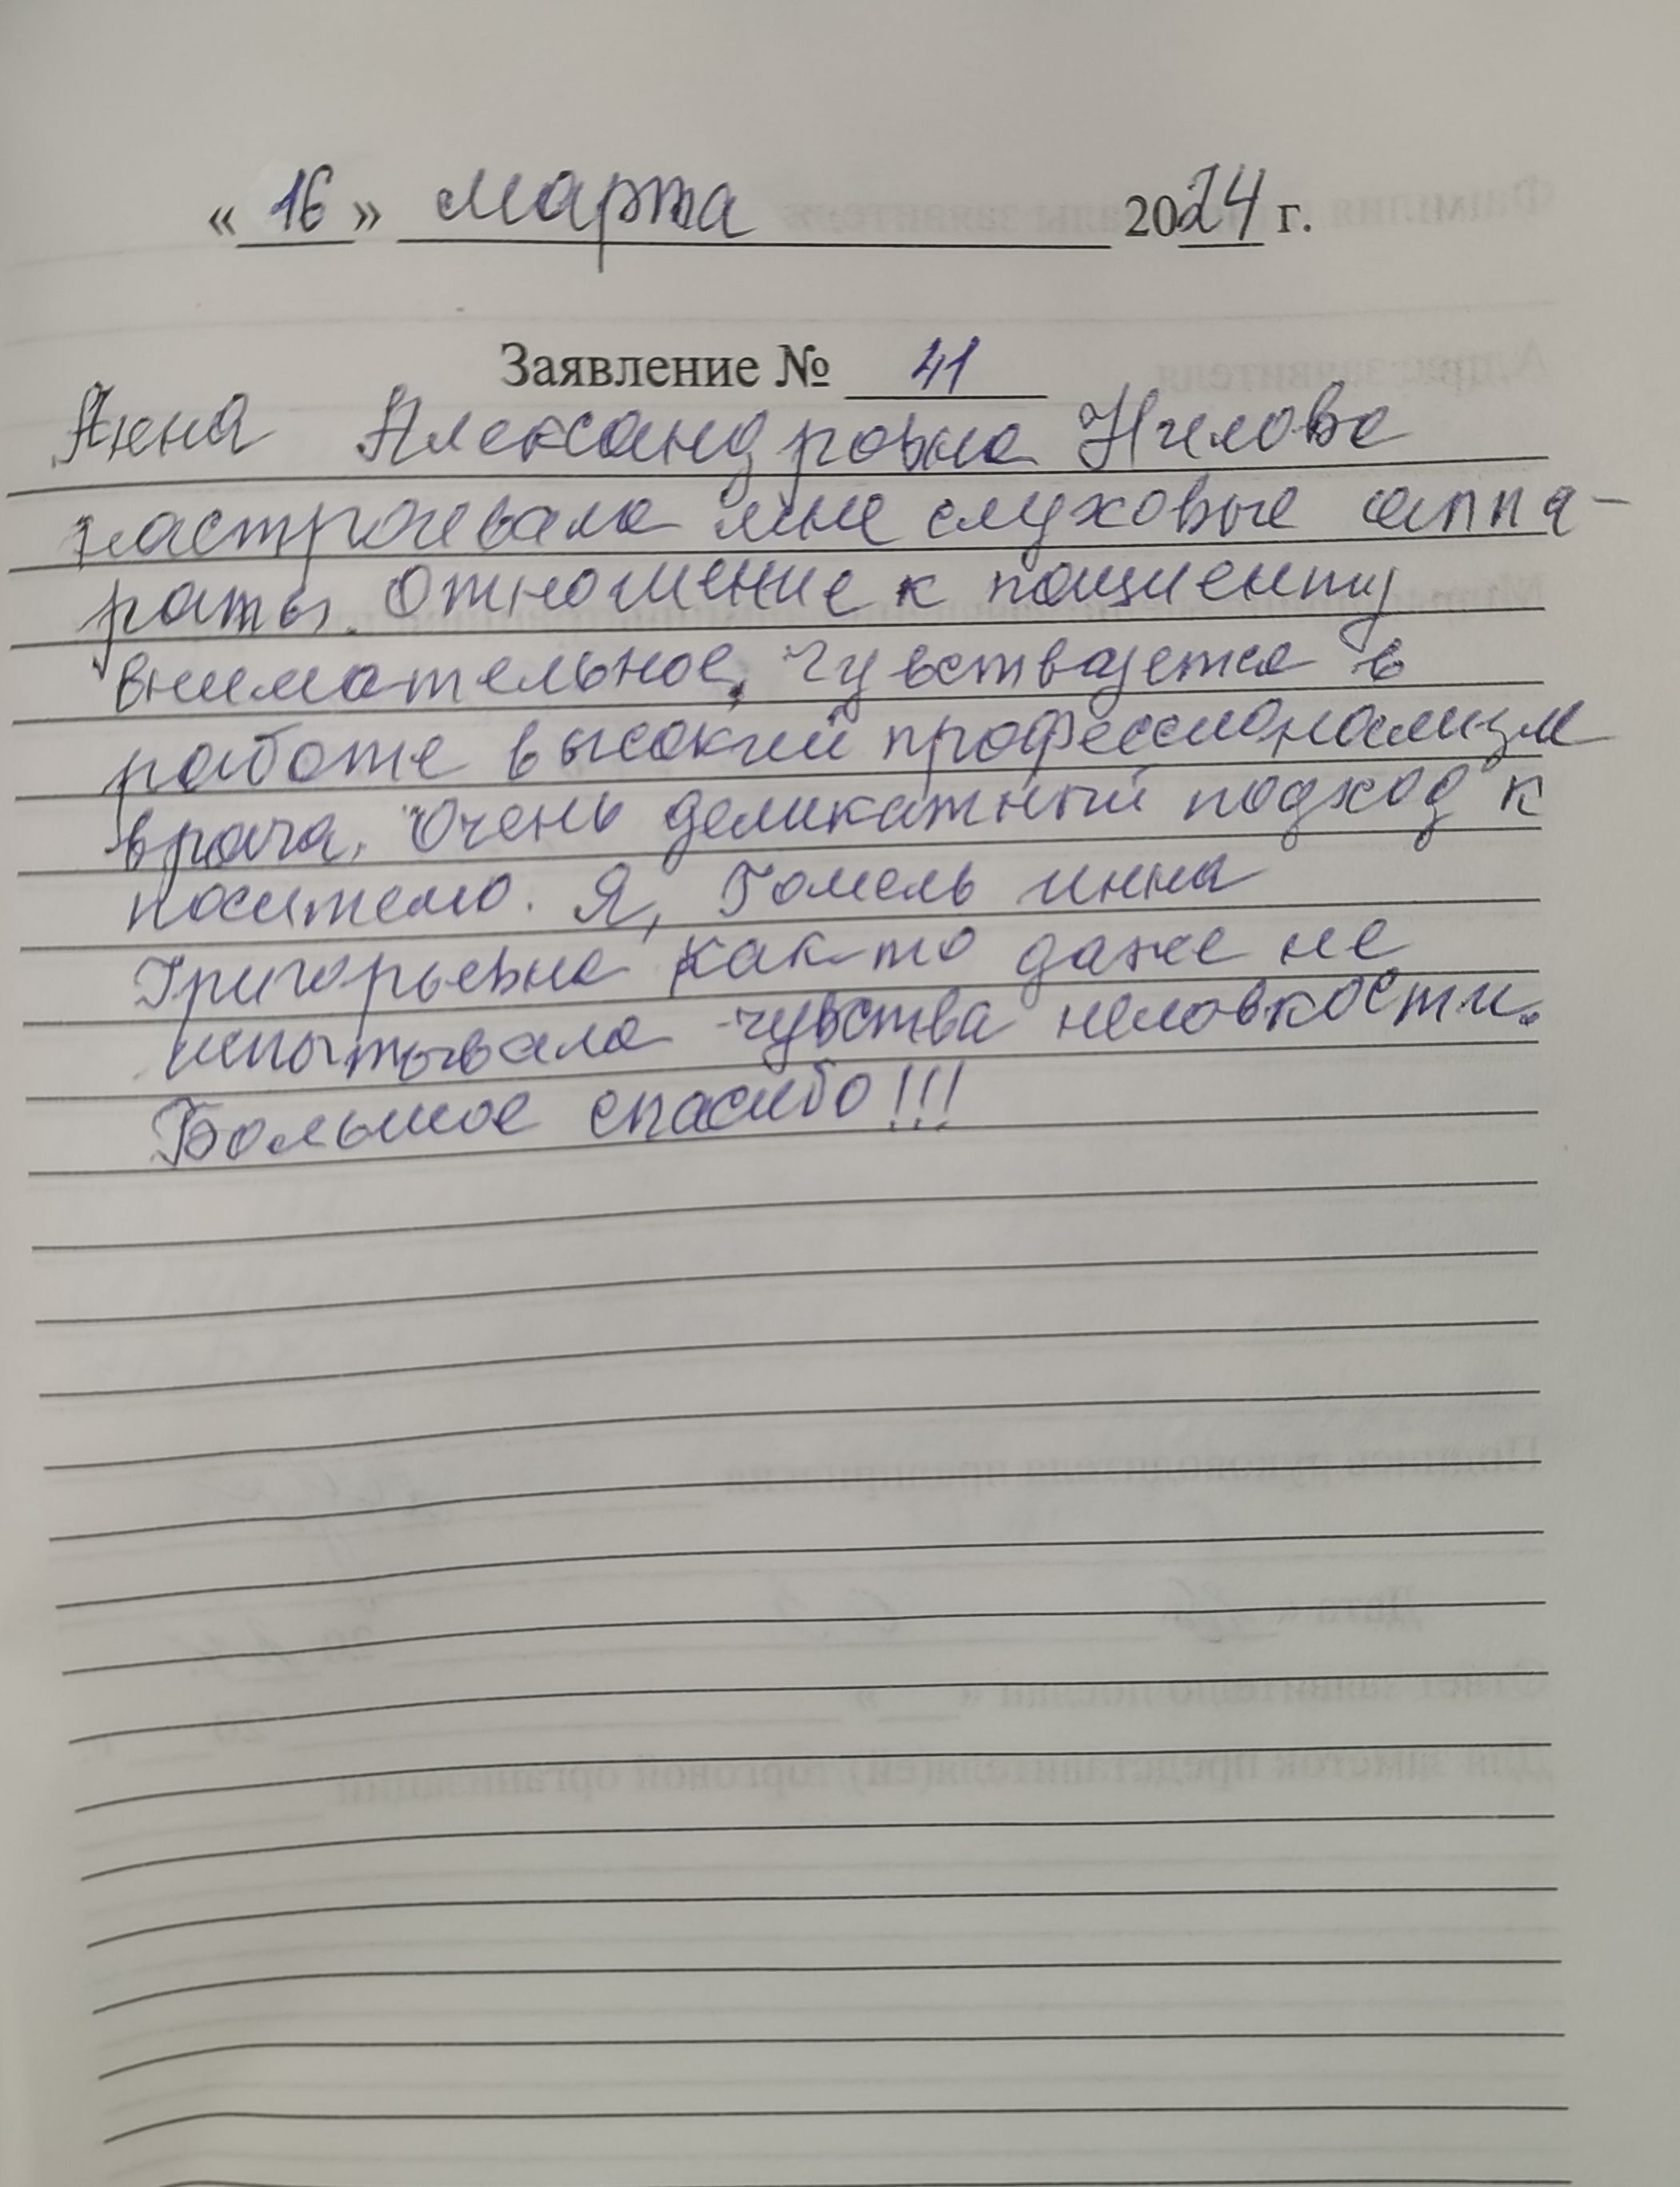 «16» марта 2024 г.
Заявление № 41
Анна Александровна Нилова
настроивала мне слуховые аппа-
раты. Отношение к пациенту
внимательное, чувствуется в
работе высокий профессионализм
врача. Очень деликатный подход к
носителю. Я, Гомель Инна
Григорьевна как-то даже не
испытывала чувства неловкости.
Большое спасибо!!!